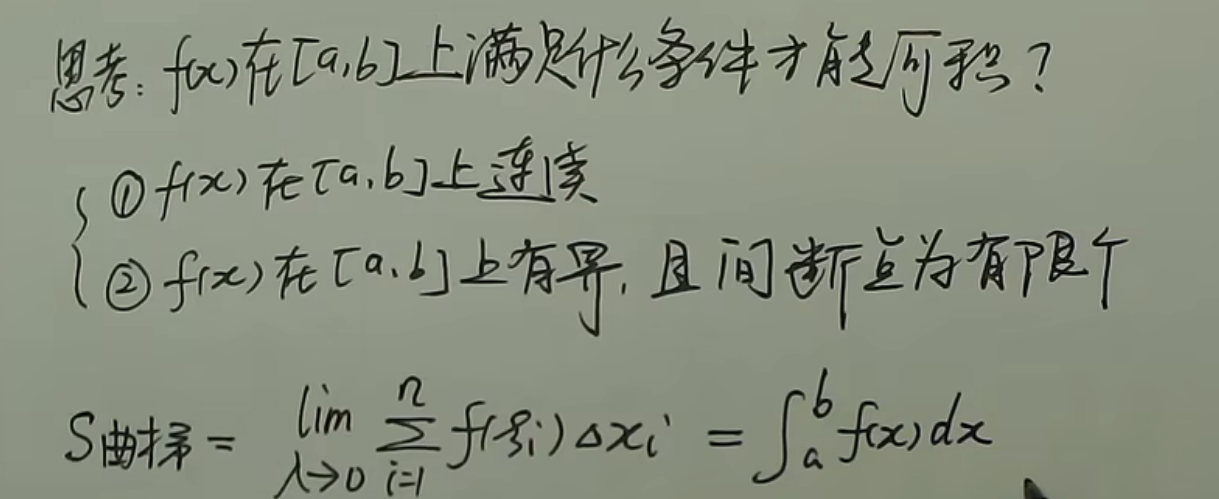 思考: f(x)在[a,b]上满足什么条件才能可积?
①f(x)在[a,b]上连续
②f(x)在[a,b]上有界,且间断点为有限个
S曲梯 = lim_{λ→0} Σ_{i=1}^{n} f(ξi)Δxi = ∫_a^b f(x)dx